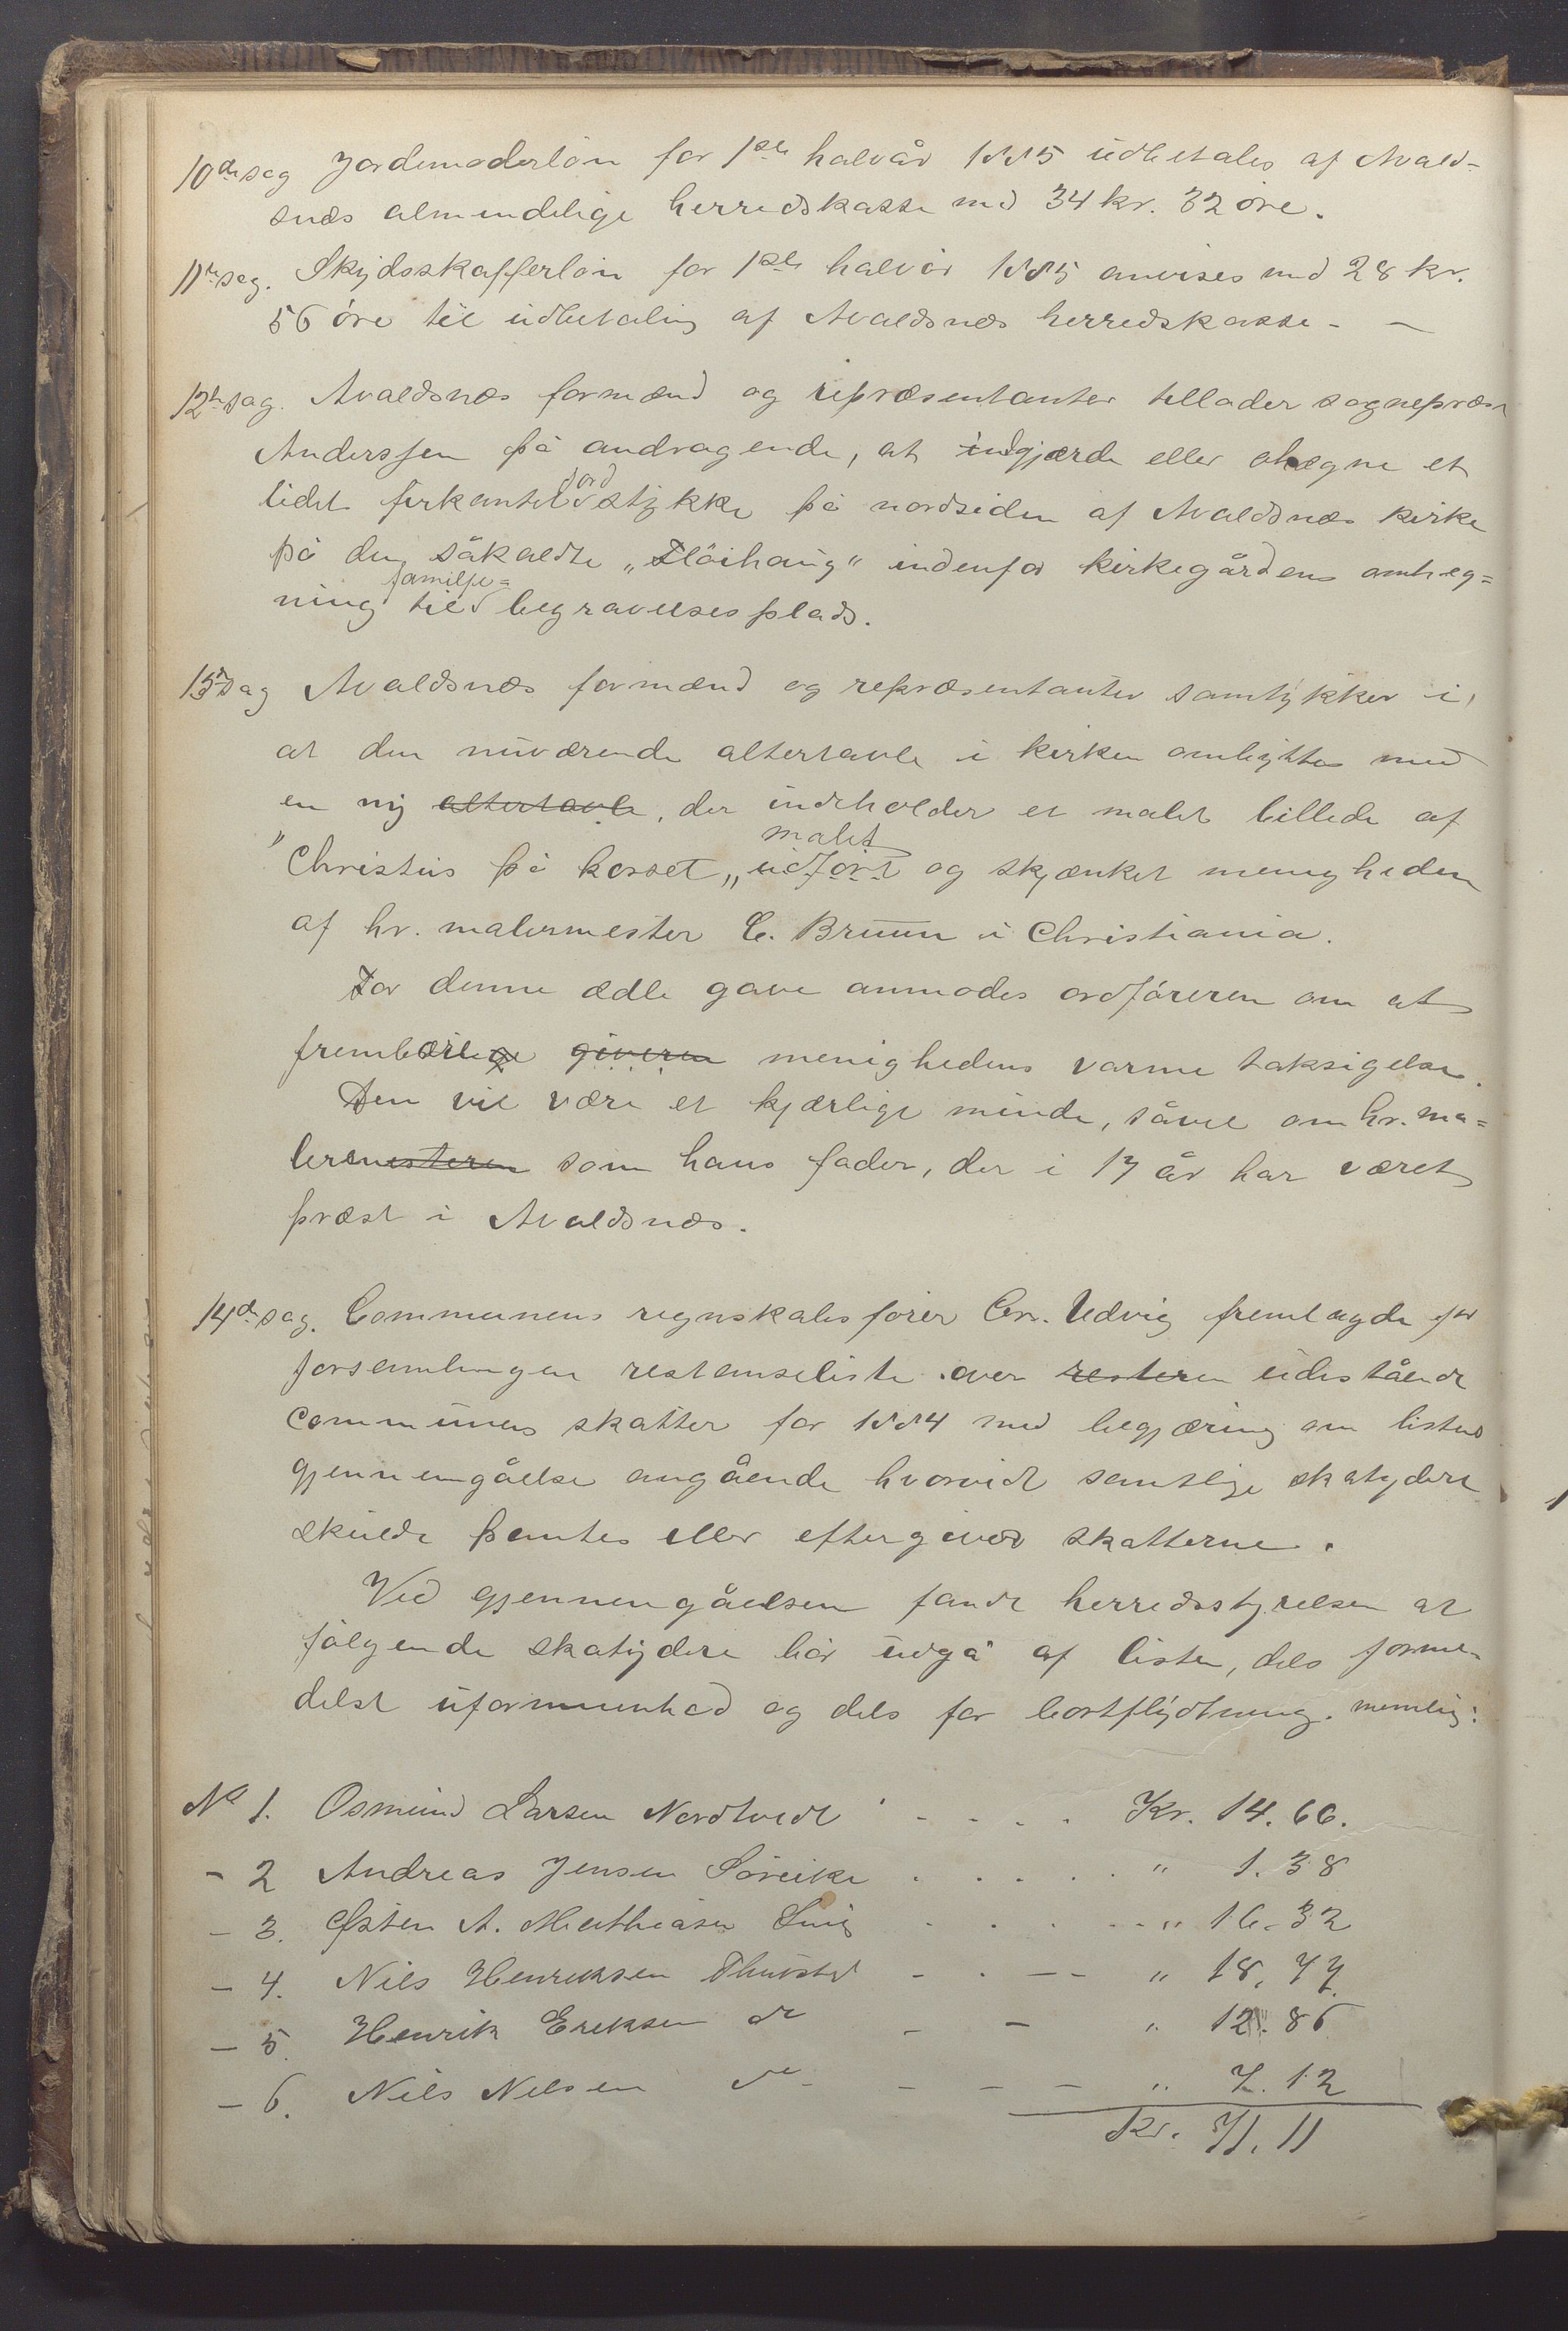 10de sag Jordemoderløn for 1ste halvår 1885 udbetales af Avald-
snæs almindelige herredskasse med 34 kr. 32 øre.
11te sag. Skydsskafferløn for 1ste halvår 1885 anvises med 28 kr.
56 øre til udbetaling af Avaldsnæs herredskasse. —
12te sag. Avaldsnæs formænd og repræsentanter tillader sognepræst
Anderssen på andragende, at indgjærde eller ahægne et
lidet firkantet jord stykke på nordsiden af Avaldsnæs kirke
på den såkaldte „Fløihaug" indenfor kirkegårdens omhæg=
ning til familje= begravelsesplads.
13de Sag Avaldsnæs formænd og repræsentanter samtykker i,
at den nuværende altertavle i kirken ombyttes med
en ny altertavle, der indeholder et malet billede af
"Christus på korset„ udført malet og skjænket menigheden
af hr. malermester C. Bruun i Christiania.
For denne ædle gave anmodes ordføreren om at
frembære giveren menighedens varme taksigelse.
Den vil være et kjærligt minde, såvel om hr. ma=
lermesteren som hans fader, der i 17 år har været
præst i Avaldsnæs.
14de sag. Communens regnskabsfører Chr. Udvig fremlagde for
forsamlingen restanseliste over resteren udestående
communens skatter for 1884 med begjæring om listens
gjennemgåelse angående hvorvidt samtlige skatydere
skulde pantes eller eftergives skatterne.
Ved gjennemgåelsen fandt herredsstyrelsen at
følgende skatydere bør udgå af listen, dels forme-
delst uformuenhed og dels for bortflydtning. nemlig:
No 1. Osmund Larsen Nordtvedt . . . . Kr. 14.66.
- 2 Andreas Jensen Søreike . . . . . " 1.38
- 3. Østen A. Mathiasen Snig . . . - - " 16.32
- 4. Nils Henriksen Thuostø - . - - " 18.77.
- 5. Henrik Eriksen do - - " 12.86
- 6. Nils Nilsen do - - - - " 7.12
Kr. 71.11